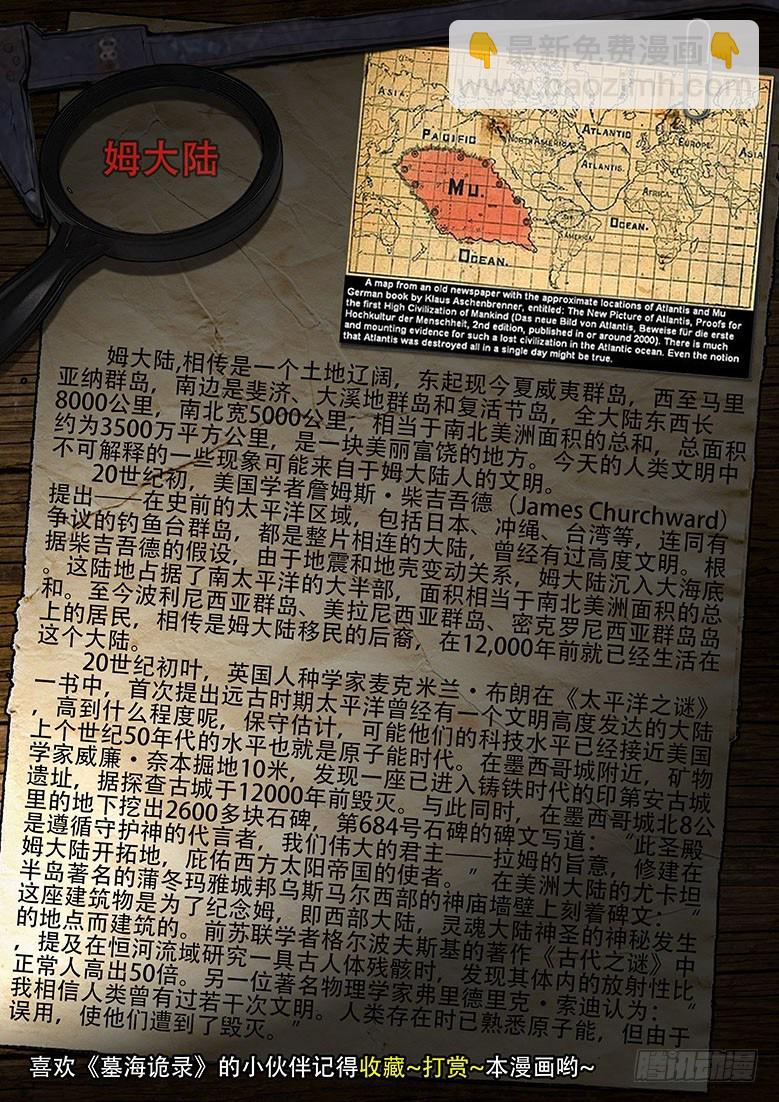 👇最新免费漫画👇
www.baozimh.com
姆大陆
ASIA
PACIFIC
NORTH AMERICA
ATLANTIC
EUROPE
ASIA
ATLANTIS
MU.
AFRICA
OCEAN.
S.AMERICA
OCEAN.
A map from an old newspaper with the approximate locations of Atlantis and Mu
German book by Klaus Aschenbrenner, entitled: The New Picture of Atlantis, Proofs for
the first High Civilization of Mankind (Das neue Bild von Atlantis, Beweise für die erste
Hochkultur der Menschheit, 2nd edition, published in or around 2000). There is much
and mounting evidence for such a lost civilization in the Atlantic ocean. Even the notion
that Atlantis was destroyed all in a single day might be true.
姆大陆,相传是一个土地辽阔，东起现今夏威夷群岛，西至马里
亚纳群岛，南边是斐济、大溪地群岛和复活节岛，全大陆东西长
8000公里，南北宽5000公里，相当于南北美洲面积的总和，总面积
约为3500万平方公里，是一块美丽富饶的地方。今天的人类文明中
不可解释的一些现象可能来自于姆大陆人的文明。
20世纪初，美国学者詹姆斯·柴吉吾德（James Churchward）
提出——在史前的太平洋区域，包括日本、冲绳、台湾等，连同有
争议的钓鱼台群岛，都是整片相连的大陆，曾经有过高度文明。根
据柴吉吾德的假设，由于地震和地壳变动关系，姆大陆沉入大海底
。这陆地占据了南太平洋的大半部，面积相当于南北美洲面积的总
和。至今波利尼西亚群岛、美拉尼西亚群岛、密克罗尼西亚群岛岛
上的居民，相传是姆大陆移民的后裔，在12,000年前就已经生活在
这个大陆。
20世纪初叶，英国人种学家麦克米兰·布朗在《太平洋之谜》
一书中，首次提出远古时期太平洋曾经有一个文明高度发达的大陆
，高到什么程度呢，保守估计，可能他们的科技水平已经接近美国
上个世纪50年代的水平也就是原子能时代。在墨西哥城附近，矿物
学家威廉·奈本掘地10米，发现一座已进入铸铁时代的印第安古城
遗址，据探查古城于12000年前毁灭。与此同时，在墨西哥城北8公
里的地下挖出2600多块石碑，第684号石碑的碑文写道：“此圣殿
是遵循守护神的代言者，我们伟大的君主——拉姆的旨意，修建在
姆大陆开拓地，庇佑西方太阳帝国的使者。”在美洲大陆的尤卡坦
半岛著名的蒲冬玛雅城邦乌斯马尔西部的神庙墙壁上刻着碑文：“
这座建筑物是为了纪念姆，即西部大陆，灵魂大陆神圣的神秘发生
的地点而建筑的。前苏联学者格尔波夫斯基的著作《古代之谜》中
，提及在恒河流域研究一具古人体残骸时，发现其体内的放射性比
正常人高出50倍。另一位著名物理学家弗里德里克·索迪认为：“
我相信人类曾有过若干次文明。人类存在时已熟悉原子能，但由于
误用，使他们遭到了毁灭。”
喜欢《墓海诡录》的小伙伴记得收藏~打赏~本漫画哟~
腾讯动漫